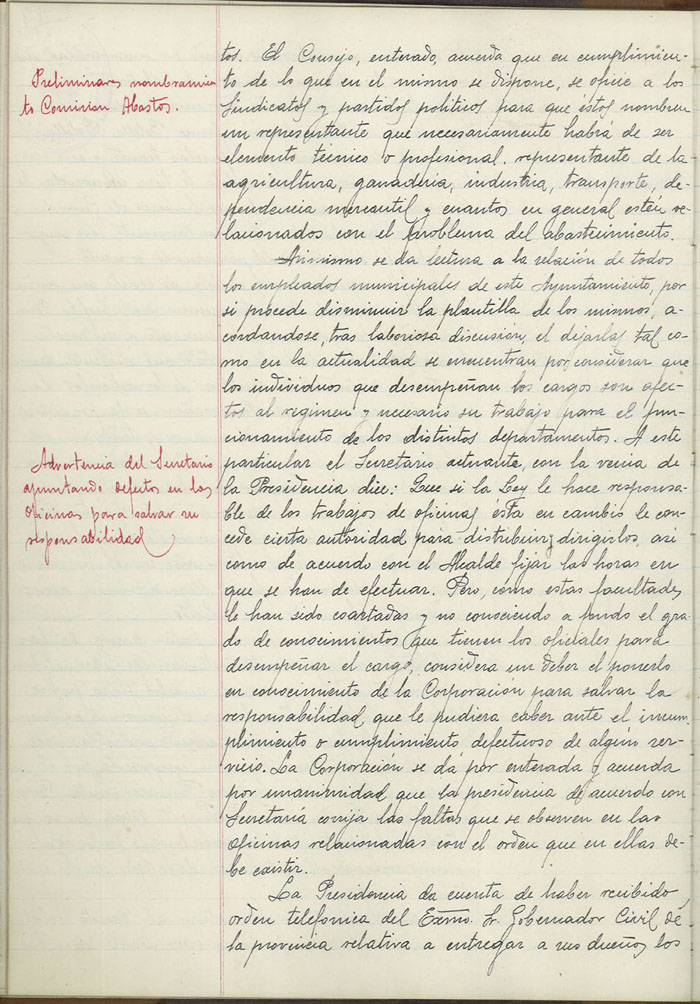 tos. El Consejo, enterado, acuerda que en cumplimien-
Preliminares nombramien
to de lo que en el mismo se dispone, se oficie a los
to Comision Abastos.
Sindicatos y partidos políticos para que éstos nombren
un representante que necesariamente habrá de ser
elemento técnico o profesional representante de la
agricultura, ganaderia, industria, transporte, de-
pendencia mercantil y cuantos en general estén re-
lacionados con el problema del abastecimiento.
Asimismo se da lectura a la relación de todos
los empleados municipales de este Ayuntamiento, por
si procede disminuir la plantilla de los mismos, a-
cordandose, tras laboriosa discusion, el dejarlas tal co-
mo en la actualidad se encuentran por considerar que
los individuos que desempeñan los cargos son afec-
tos al regimen y necesario su trabajo para el fun-
cionamiento de los distintos departamentos. A este
Advertencia del Secretario
particular el Secretario actuante, con la venia de
apuntando defectos en las
la Presidencia dice: Que si la Ley le hace responsa-
oficinas para salvar su
ble de los trabajos de oficinas esta en cambio le con-
responsabilidad
cede cierta autoridad para distribuir y dirigirlos, asi
como de acuerdo con el Alcalde fijar las horas en
que se han de efectuar. Pero, como estas facultades
le han sido coartadas y no conociendo a fondo el gra-
do de conocimientos que tienen los oficiales para
desempeñar el cargo, considera un deber el ponerlo
en conocimiento de la Corporación para salvar la
responsabilidad que le pudiera caber ante el incum-
plimiento o cumplimiento defectuoso de algún ser-
vicio. La Corporacion se dá por enterada y acuerda
por unanimidad que la presidencia de acuerdo con
Secretaría corrija las faltas que se observen en las
oficinas relacionadas con el orden que en ellas de-
be existir.
La Presidencia da cuenta de haber recibido
orden telefonica del Excmo. Sr. Gobernador Civil de
la provincia relativa a entregar a sus dueños los